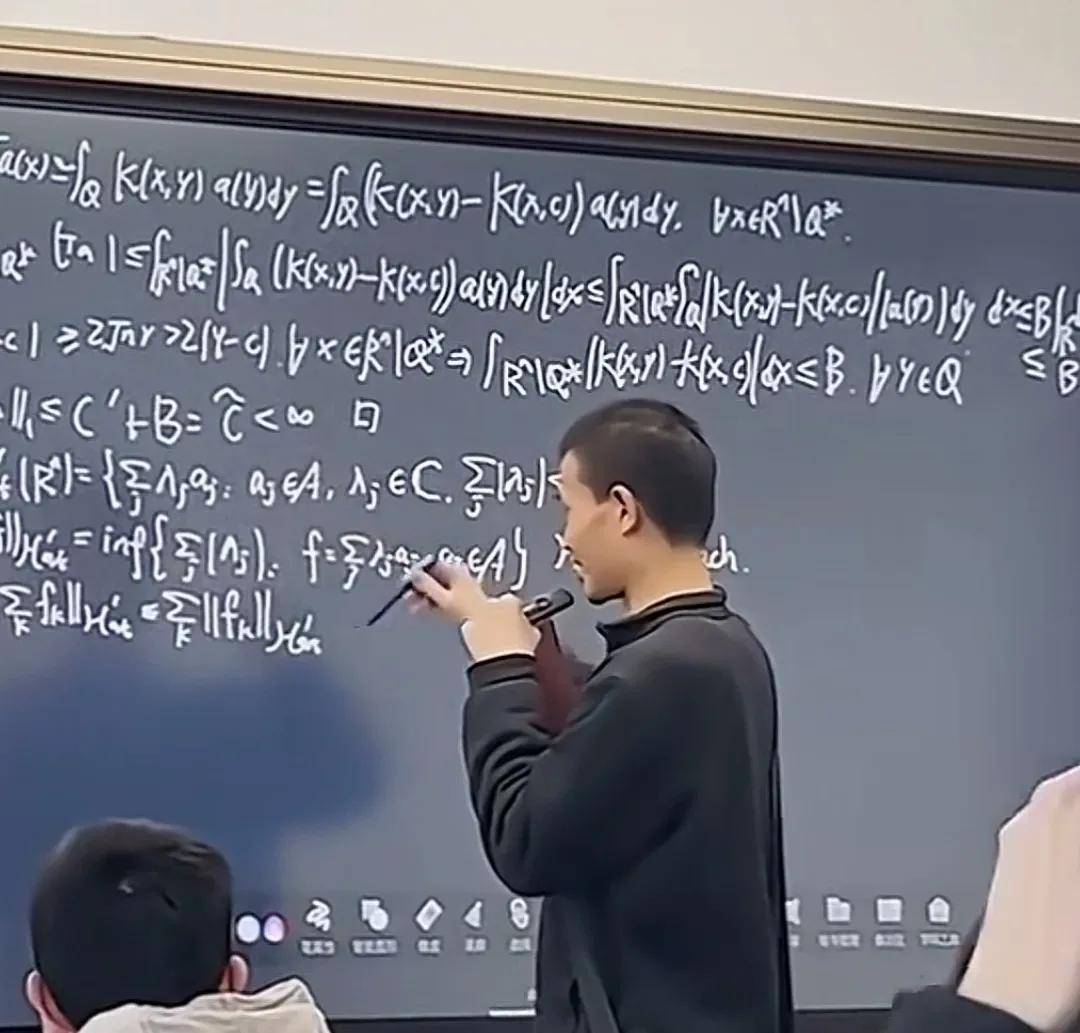 a(x) = ∫_Q K(x,y) a(y)dy = ∫_Q (K(x,y) − K(x,c)) a(y)dy, ∀x∈R^n\Q*.
Q* |Ta| ≤ ∫_{R^n\Q*} |∫_Q (K(x,y)−K(x,c)) a(y)dy| dx ≤ ∫_{R^n\Q*} ∫_Q |K(x,y)−K(x,c)| |a(y)| dy dx ≤ B
−c| ≥ 2√n r > 2|y−c|, ∀x∈R^n\Q* ⇒ ∫_{R^n\Q*} |K(x,y)−K(x,c)| dx ≤ B, ∀y∈Q ≤ B
‖₁ ≤ C' + B = C̃ < ∞ □
(R^n) = {∑_j λ_j a_j : a_j ∈ A, λ_j ∈ C, ∑_j |λ_j|
‖_{H'_{at}} = inf{∑_j |λ_j| : f = ∑_j λ_j a_j, ∈A}
∑_k f_k‖_{H'_{at}} ≤ ∑_k ‖f_k‖_{H'_{at}}